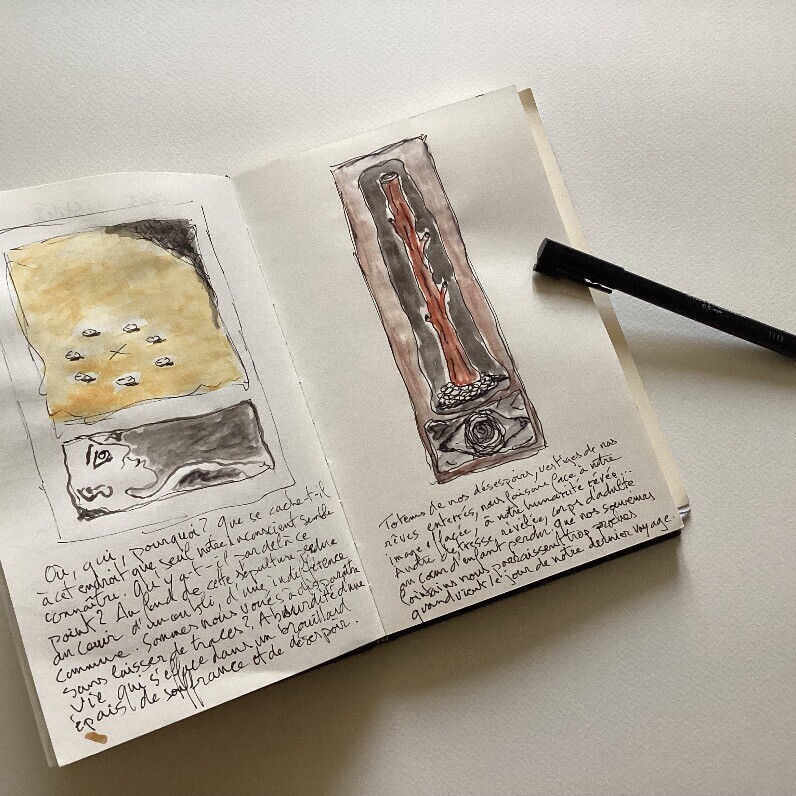 Où, qui, pourquoi? Que se cache-t-il
à cet endroit que seul notre inconscient semble
connaître. Qu'y a-t-il par delà ce
point? Au fond de cette sépulture perdue
au cœur d'un oubli, d'une indifférence
commune. Sommes nous voués à disparaître
sans laisser de traces? Absurdité d'une
vie qui s'efface dans un brouillard
épais de souffrance et de désespoir.
Totems de nos désespoirs, vestiges de nos
rêves enterrés, nous laissons face à notre
image effacée, à notre humanité
détresse, révélée, corps d'adulte
au cœur d'enfant perdu que nos souvenirs
lointains nous paraissent trop proches
quand vient le jour de notre dernier voyage.